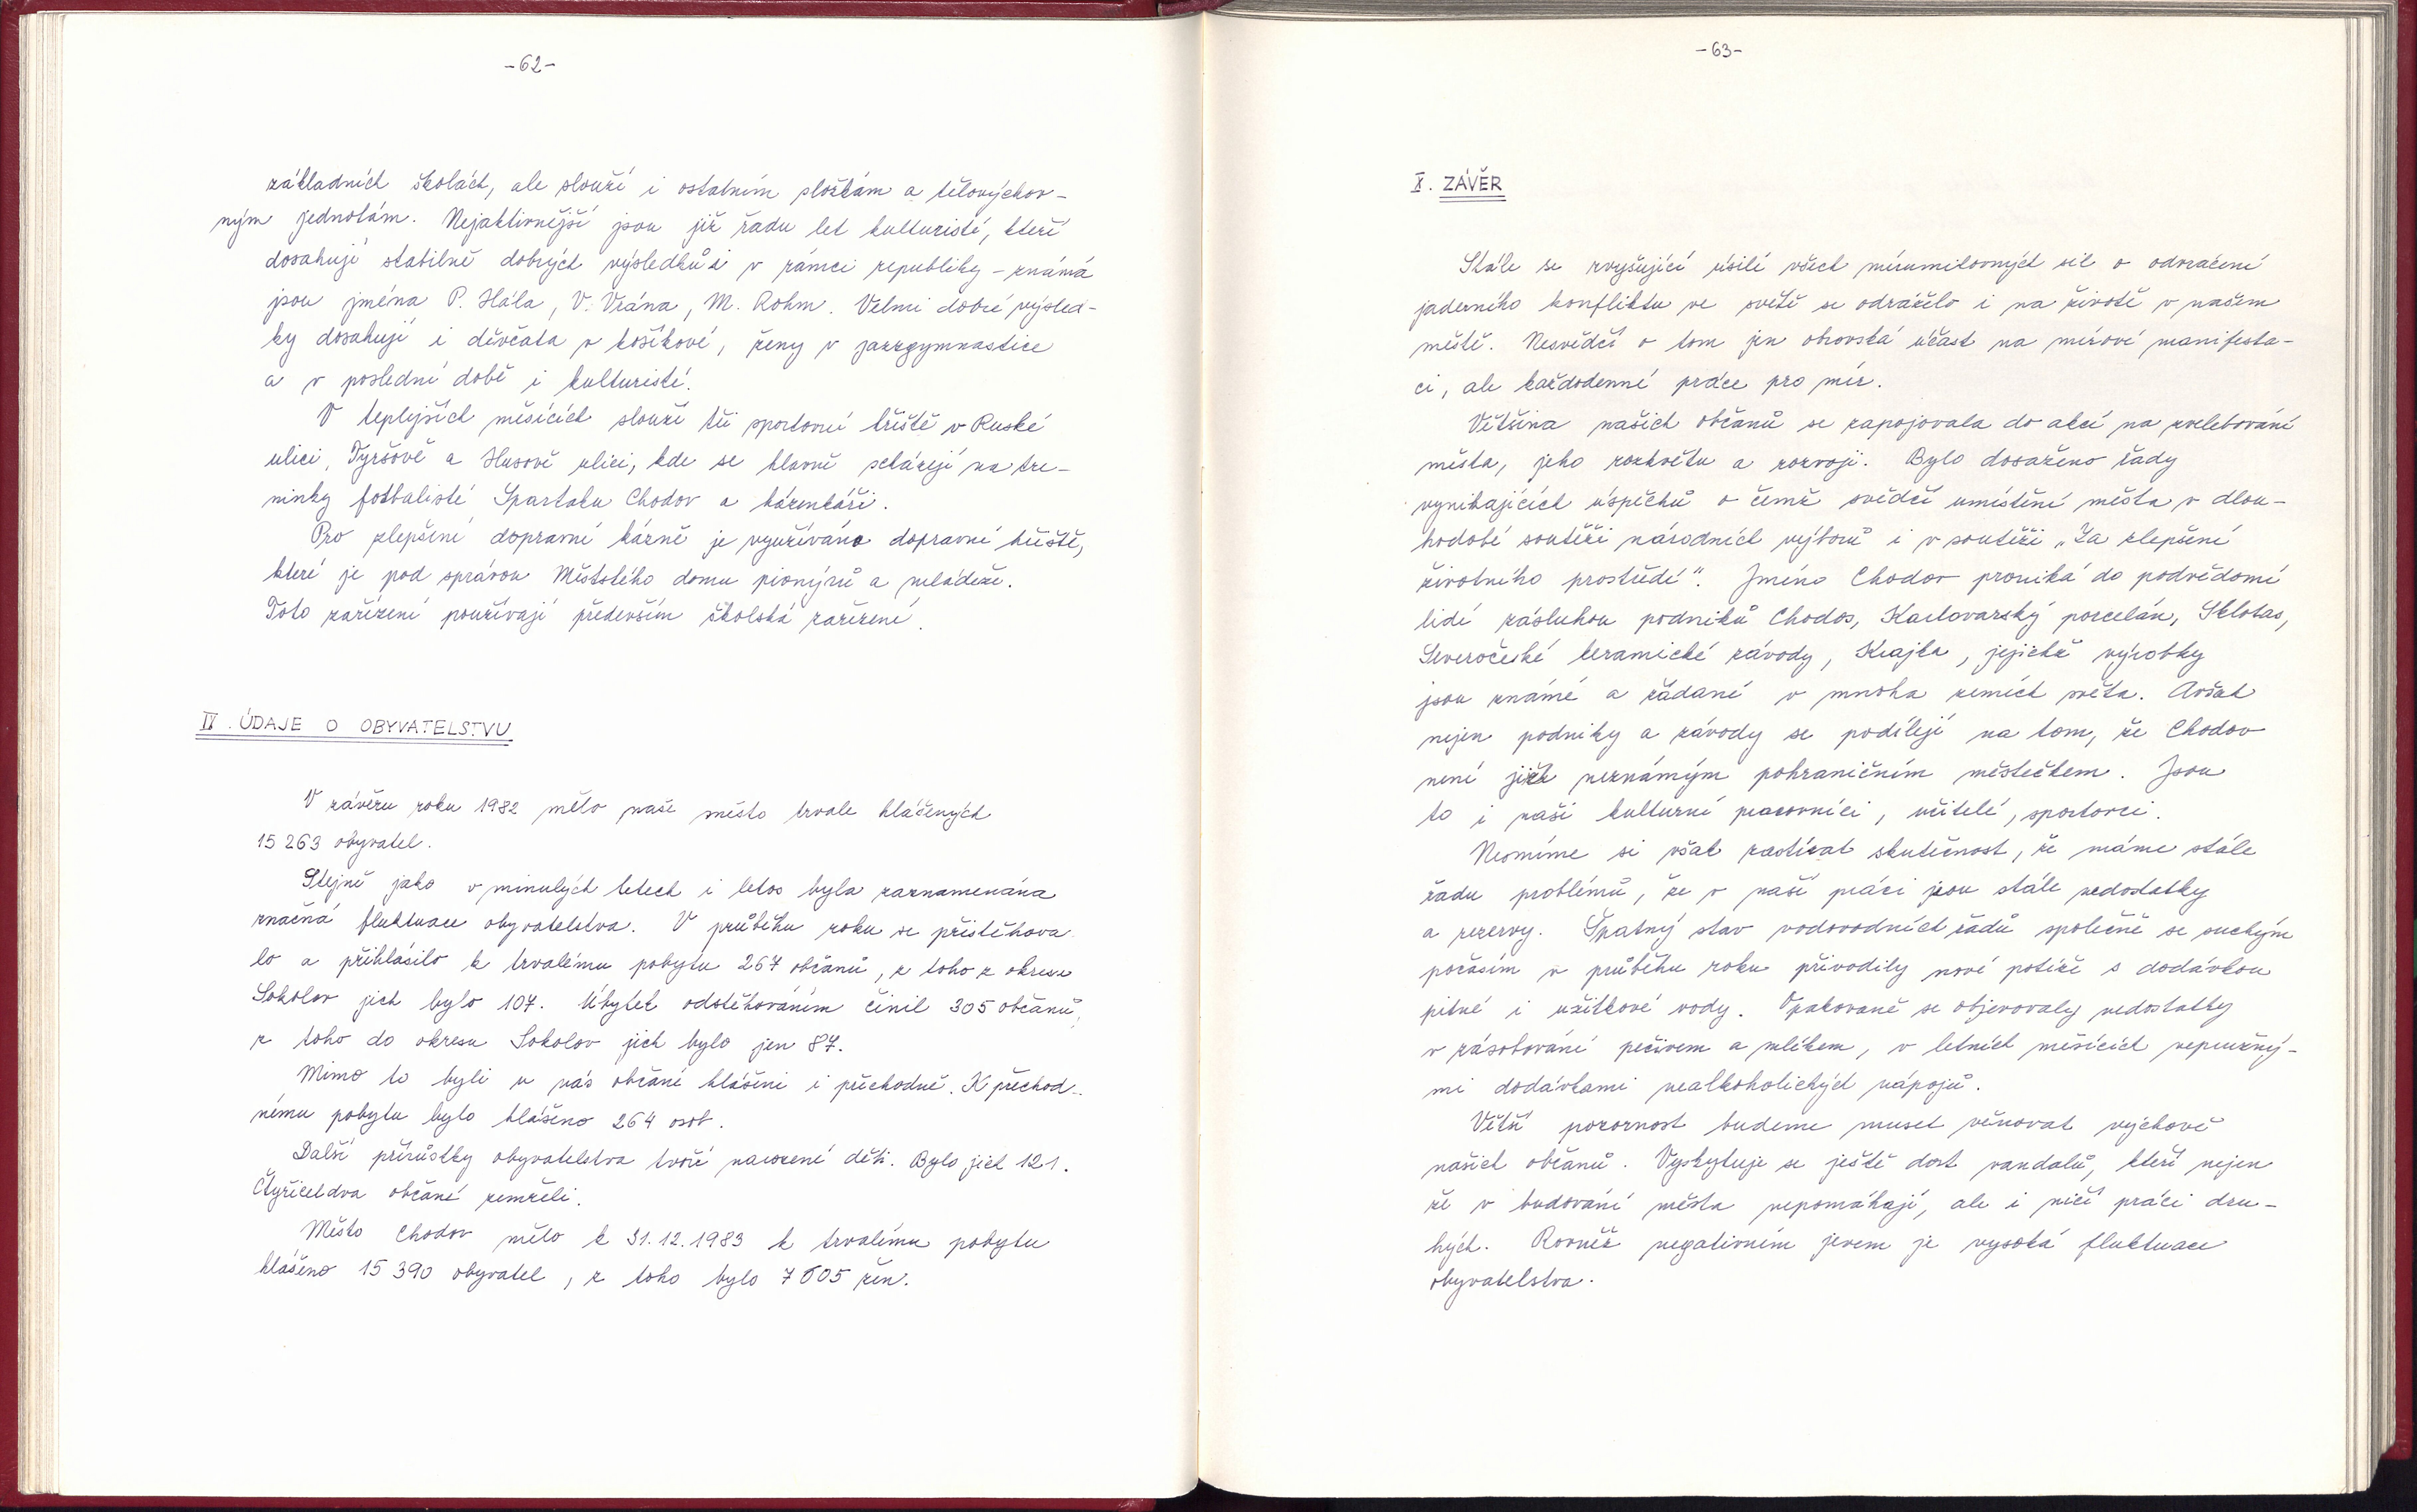 -62-
základních školách, ale slouží i ostatním složkám a tělovýchov-
ným jednotám. Nejaktivnější jsou již řadu let kulturisté, kteří
dosahují stabilně dobrých výsledků i v rámci republiky - známá
jsou jména P. Hála, V. Vrána, M. Rohm. Velmi dobré výsled-
ky dosahují i děvčata v košíkové, ženy v jazzgymnastice
a v poslední době i kulturisté.
V teplejších měsících slouží tři sportovní hřiště v Ruské
ulici, Tyršově a Husově ulici, kde se hlavně scházejí na tre-
ninky fotbalisté Spartaku Chodov a házenkáři.
Pro zlepšení dopravní kázně je využíváno dopravní hřiště,
které je pod správou Městského domu pionýrů a mládeže.
Toto zařízení používají především školská zařízení.
IX. ÚDAJE O OBYVATELSTVU
V závěru roku 1982 mělo naše město trvale hlášených
15 263 obyvatel.
Stejně jako v minulých letech i letos byla zaznamenána
značná fluktuace obyvatelstva. V průběhu roku se přistěhova
lo a přihlásilo k trvalému pobytu 267 občanů, z toho z okresu
Sokolov jich bylo 107. Úbytek odstěhováním činil 305 občanů,
z toho do okresu Sokolov jich bylo jen 87.
Mimo to byli u nás občané hlášeni i přechodně. K přechod-
nému pobytu bylo hlášeno 264 osob.
Další přírůstky obyvatelstva tvoří narozené děti. Bylo jich 121.
Čtyřicetdva občané zemřeli.
Město Chodov mělo k 31.12.1983 k trvalému pobytu
hlášeno 15 390 obyvatel, z toho bylo 7 605 žen.
-63-
X. ZÁVĚR
Stále se zvyšující úsilí všech mírumilovných sil o odvrácení
jaderného konfliktu ve světě se odráželo i na životě v našem
městě. Nesvědčí o tom jen obrovská účast na mírové manifesta-
ci, ale každodenní práce pro mír.
Většina našich občanů se zapojovala do akcí na zvelebování
města, jeho rozkvětu a rozvoji. Bylo dosaženo řady
vynikajících úspěchů o čemž svědčí umístění města v dlou-
hodobé soutěži národních výborů i v soutěži „Za zlepšení
životního prostředí". Jméno Chodov proniká do podvědomí
lidí zásluhou podniků Chodos, Karlovarský porcelán, Sklotas,
Severočeské keramické závody, Krajka, jejichž výrobky
jsou známé a žádané v mnoha zemích světa. Avšak
nejen podniky a závody se podílejí na tom, že Chodov
není již neznámým pohraničním městečkem. Jsou
to i naši kulturní pracovníci, učitelé, sportovci.
Nesmíme si však zastírat skutečnost, že máme stále
řadu problémů, že v naší práci jsou stále nedostatky
a rezervy. Špatný stav vodovodních řádů společně se suchým
počasím v průběhu roku přivodily nové potíže s dodávkou
pitné i užitkové vody. Opakovaně se objevovaly nedostatky
v zásobování pečivem a mlékem, v letních měsících nepružný-
mi dodávkami nealkoholických nápojů.
Větší pozornost budeme muset věnovat výchově
našich občanů. Vyskytuje se ještě dost vandalů, kteří nejen
že v budování města nepomáhají, ale i ničí práci dru-
hých. Rovněž negativním jevem je vysoká fluktuace
obyvatelstva.